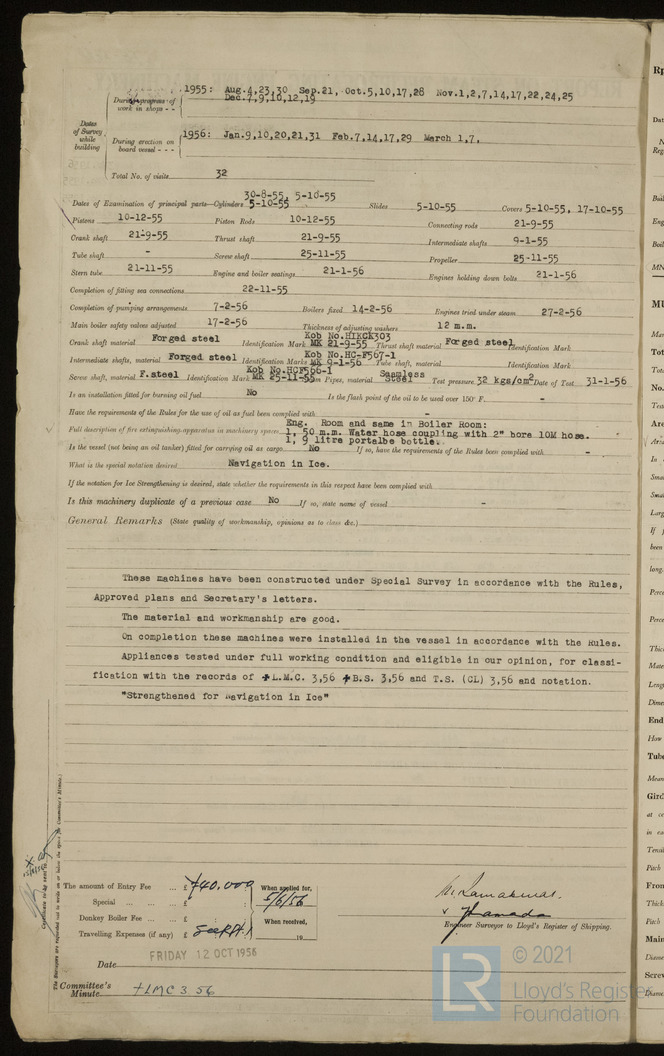 1955: Aug.4,23,30 Sep.21, Oct.5,10,17,28 Nov.1,2,7,14,17,22,24,25
During progress of work in shops - - Dec.7,9,10,12,19
Dates of Survey while building
During erection on board vessel - - - 1956: Jan.9,10,20,21,31 Feb.7,14,17,29 March 1,7,
Total No. of visits 32
Dates of Examination of principal parts—Cylinders 30-8-55, 5-10-55 5-10-55 Slides 5-10-55 Covers 5-10-55, 17-10-55
Pistons 10-12-55 Piston Rods 10-12-55 Connecting rods 21-9-55
Crank shaft 21-9-55 Thrust shaft 21-9-55 Intermediate shafts 9-1-55
Tube shaft - Screw shaft 25-11-55 Propeller 25-11-55
Stern tube 21-11-55 Engine and boiler seatings 21-1-56 Engines holding down bolts 21-1-56
Completion of fitting sea connections 22-11-55
Completion of pumping arrangements 7-2-56 Boilers fixed 14-2-56 Engines tried under steam 27-2-56
Main boiler safety valves adjusted 17-2-56 Thickness of adjusting washers 12 m.m.
Crank shaft material Forged steel Identification Mark Kob No.HIKCK303 MK 21-9-55 Thrust shaft material Forged steel Identification Mark
Intermediate shafts, material Forged steel Identification Marks Kob No.HC-F567-1 MK 9-1-56 Tube shaft, material Identification Mark
Screw shaft, material F.steel Identification Mark Kob No.HCF566-1 MK 25-11-55 Steam Pipes, material Seamless Steel Test pressure 32 kgs/cm² Date of Test 31-1-56
Is an installation fitted for burning oil fuel No Is the flash point of the oil to be used over 150° F. -
Have the requirements of the Rules for the use of oil as fuel been complied with -
Eng. Room and same in Boiler Room:
Full description of fire extinguishing apparatus in machinery spaces 1, 50 m.m. Water hose coupling with 2" bore 10M hose.
1, 9 litre portalbe bottle.
Is the vessel (not being an oil tanker) fitted for carrying oil as cargo No If so, have the requirements of the Rules been complied with -
What is the special notation desired Navigation in Ice.
If the notation for Ice Strengthening is desired, state whether the requirements in this respect have been complied with
Is this machinery duplicate of a previous case No If so, state name of vessel -
General Remarks (State quality of workmanship, opinions as to class &c.)
These machines have been constructed under Special Survey in accordance with the Rules,
Approved plans and Secretary's letters.
The material and workmanship are good.
On completion these machines were installed in the vessel in accordance with the Rules.
Appliances tested under full working condition and eligible in our opinion, for classi-
fication with the records of ✠L.M.C. 3,56 ✠B.S. 3,56 and T.S. (CL) 3,56 and notation.
"Strengthened for Navigation in Ice"
The amount of Entry Fee ... £ ¥40,000 When applied for,
Special ... ... £ 5/6/56
Donkey Boiler Fee ... ... £ When received,
Travelling Expenses (if any) £ 19
Engineer Surveyor to Lloyd's Register of Shipping.
FRIDAY 12 OCT 1956
Date
Committee's Minute +LMC 3.56
LR © 2021
Lloyd's Register
Foundation